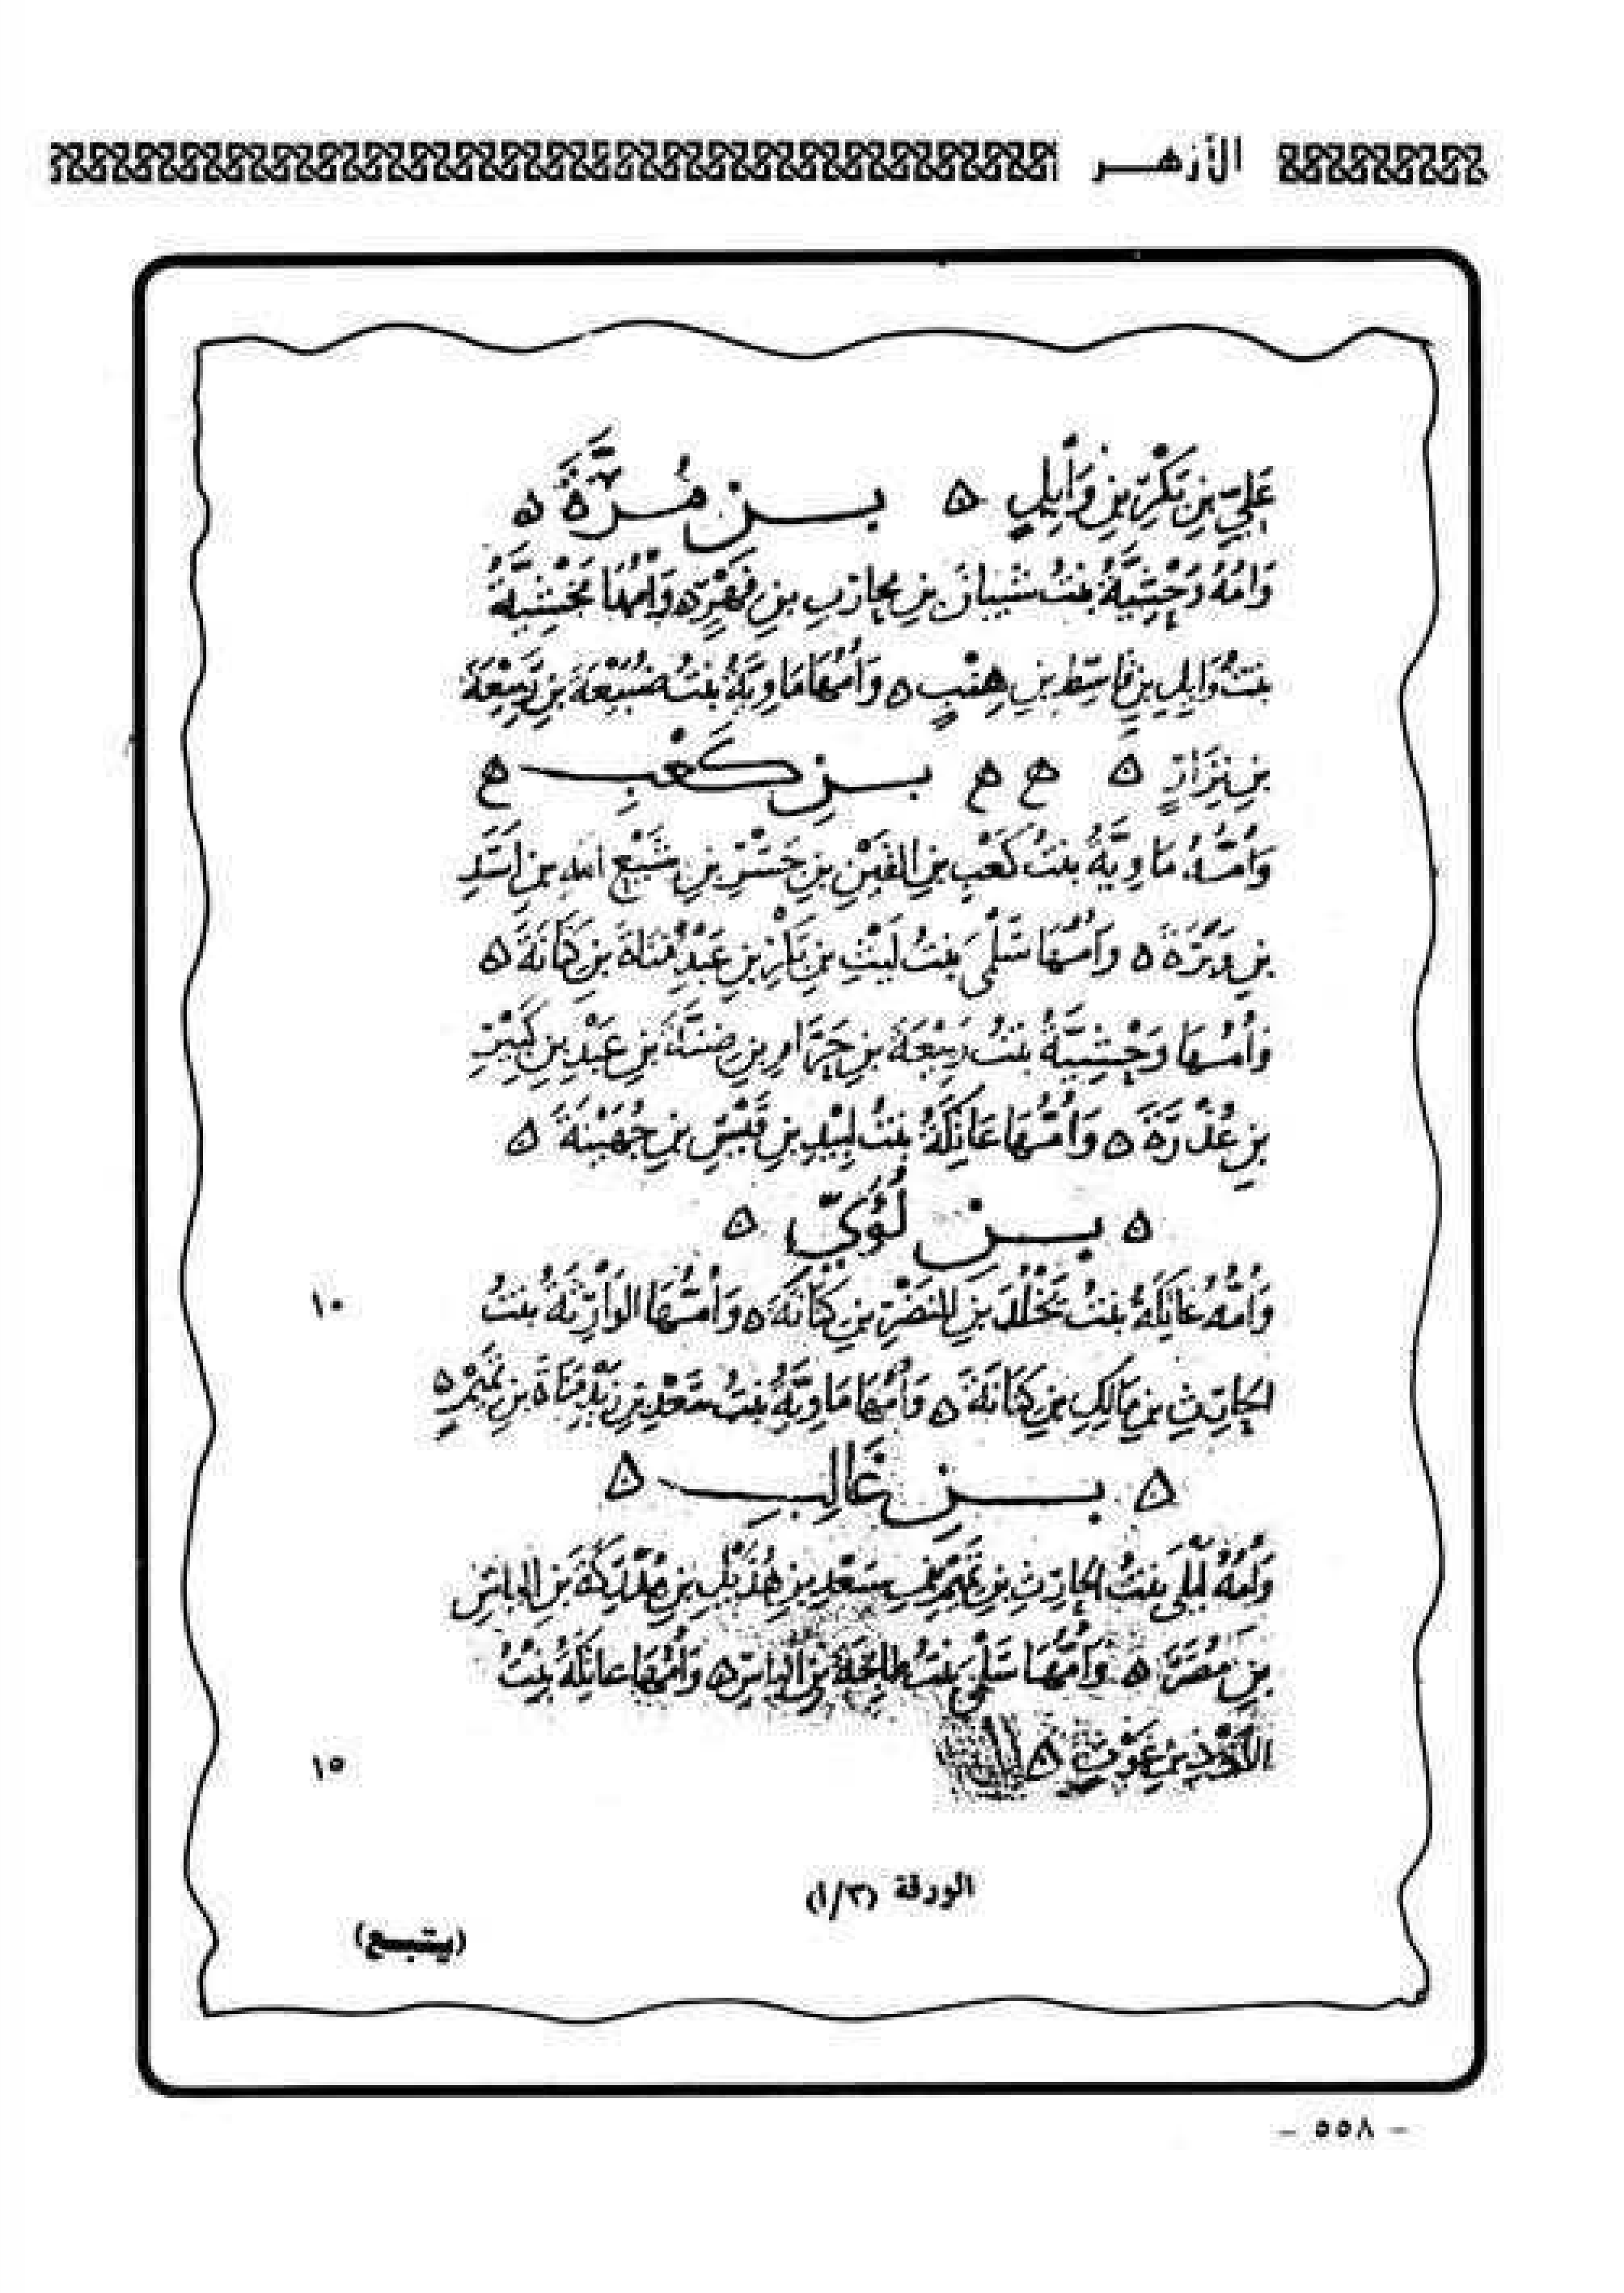 الأزهــر
عَلِيِّ بنِ بَكْرِ بنِ وَائِلٍ ه بــن مُرَّةَ ه
وَأُمُّهُ وَحْشِيَّةُ بنتُ شَيْبَانَ بنِ مُحَارِبِ بنِ فِهْرٍ ه وَأُمُّهَا مَخْشِيَّةُ
بنتُ وَائِلِ بنِ قَاسِطِ بنِ هِنْبٍ ه وَأُمُّهَا مَاوِيَّةُ بنتُ ضُبَيْعَةَ بنِ رَبِيعَةَ
بنِ نِزَارٍ ه ه ه بــنِ كَعْبِ ه
وَأُمُّهُ مَاوِيَّةُ بنتُ كَعْبِ بنِ القَيْنِ بنِ جَسْرِ بنِ شَيْعِ اللهِ بنِ أَسَدِ
بنِ وَبَرَةَ ه وَأُمُّهَا سَلْمَى بنتُ لَيْثِ بنِ بَكْرِ بنِ عَبْدِ مَنَاةَ بنِ كِنَانَةَ ه
وَأُمُّهَا وَحْشِيَّةُ بنتُ رَبِيعَةَ بنِ حَرَّامِ بنِ ضِنَّةَ بنِ عَبْدِ بنِ كَبِيرِ
بنِ عُذْرَةَ ه وَأُمُّهَا عَاتِكَةُ بنتُ لَبِيْدِ بنِ قَيْسِ بنِ جُهَيْنَةَ ه
ه بــنِ لُؤَيِّ ه
وَأُمُّهُ عَاتِكَةُ بنتُ يَخْلُدَ بنِ النَّضْرِ بنِ كِنَانَةَ ه وَأُمُّهَا الوَارِثَةُ بنتُ ١٠
الحَارِثِ بنِ مَالِكِ بنِ كِنَانَةَ ه وَأُمُّهَا مَاوِيَّةُ بنتُ سَعْدِ بنِ زَيْدِ مَنَاةَ بنِ تَمِيْمٍ ه
ه بــنِ غَالِبِ ه
وَأُمُّهُ لَيْلَى بنتُ الحَارِثِ بنِ تَمِيْمِ بنِ سَعْدِ بنِ هُذَيْلِ بنِ مُدْرِكَةَ بنِ اليَاسِ
بنِ مُضَرَ ه وَأُمُّهَا سَلْمَى بنتُ طَابِخَةَ بنِ اليَاسِ ه وَأُمُّهَا عَاتِكَةُ بنتُ
الأَزْدِ بنِ غَوْثٍ ه ١٥
الورقة (٣/أ)
(يتبــع)
- ٥٥٨ -